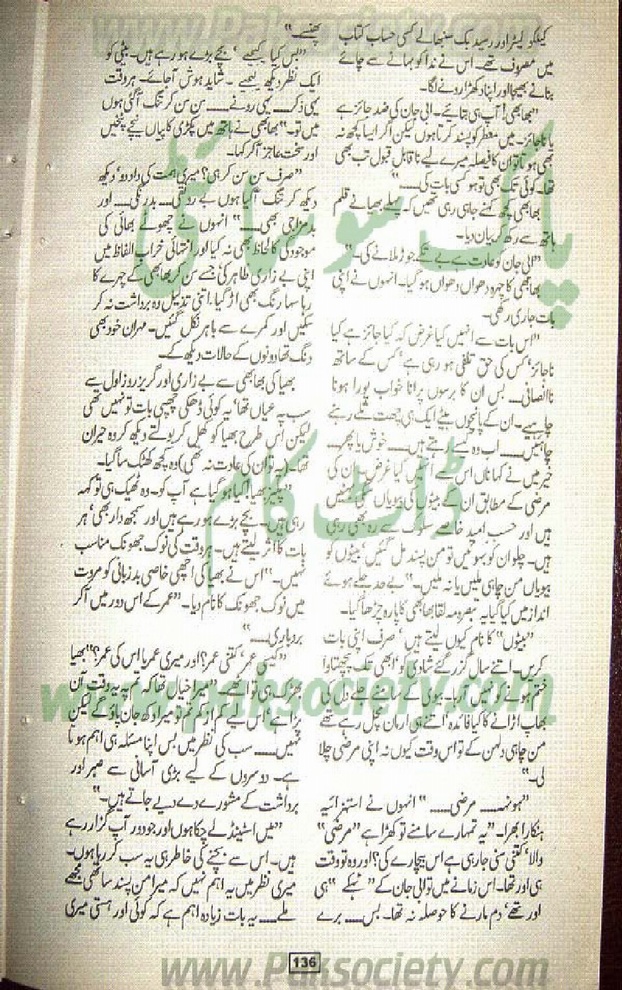 www.Paksociety.com
کیلکولیٹر اور رسید بک سنبھالے کسی حساب کتاب
میں مصروف تھے۔ اس نے ندا کو بہانے سے چائے
بنانے بھیجا اور اپنا دکھڑا رونے لگا۔
"بھابھی! آپ ہی بتائیے۔ ابی جان کی ضد جائز ہے
یا ناجائز۔ میں معطر کو پسند کرتا ہوں لیکن اگر ایسا کچھ نہ
بھی ہوتا تو ان کا فیصلہ میرے لیے ناقابل قبول تب بھی
تھا۔ کوئی تک بھی تو ہو کسی بات کی۔۔۔۔"
بھابھی کچھ کہنے جا ہی رہی تھیں کہ پہلے بھیا نے قلم
ہاتھ سے رکھ کر بیان دیا۔
"ابی جان کو عادت ہے بے تکے جوڑ ملانے کی۔"
بھابھی کا چہرہ دھواں دھواں ہو گیا۔ انہوں نے اپنی
بات جاری رکھی۔
"اس بات سے انہیں کیا غرض کہ کیا جائز ہے کیا
ناجائز، کس کی حق تلفی ہو رہی ہے، کس کے ساتھ
ناانصافی۔۔۔۔ بس ان کا برسوں پرانا خواب پورا ہونا
چاہیے۔ ان کے پانچوں بیٹے ایک ہی چھت تلے رہنے
چاہئیں۔۔۔۔ اب وہ کیسے رہتے ہیں۔۔۔۔ خوش یا پھر۔۔۔۔
خیر میں نے کہا ناں اس سے انہیں کیا غرض۔ ان کی
مرضی کے مطابق ان کے بیٹوں کی بیویاں
ہیں اور حسب امید خاصے سلوک سے رہ بھی رہی
ہیں۔ چلو ان کو بہوئیں تو من پسند مل گئیں، بیٹوں کو
بیویاں من چاہی ملیں یا نہ ملیں۔" بے حد جلے ہوئے
انداز میں کیا گیا یہ تبصرہ مہ لقا بھابھی کا پارہ چڑھا گیا۔
"بیٹوں" کا نام کیوں لیتے ہیں، صرف اپنی بات
کریں۔ اتنے سال گزر گئے شادی کو، ابھی تک پچھتاوا
ختم ہونے کو نہیں آ رہا۔ بیوی کے سامنے بیٹھے دل کی
بھاپ اڑانے کا کیا فائدہ، اتنے ہی ارمان مچل رہے تھے
من چاہی دلہن کے تو اس وقت کیوں نہ اپنی مرضی چلا
لی۔"
"ہونہہ۔۔۔۔ مرضی۔۔۔۔" انہوں نے استہزائیہ
ہنکارا بھرا۔ "یہ تمہارے سامنے تو کھڑا ہے "مرضی"
والا، کتنی سنی جا رہی ہے اس بیچارے کی؟ اور وہ تو وقت
ہی اور تھا۔ اس زمانے میں تو ابی جان کے "ٹہکے" ہی
اور تھے، دم مارنے کا حوصلہ نہ تھا۔ بس۔۔۔۔ برے
پھنسے۔"
"بس کیا کیجیے، بچے بڑے ہو رہے ہیں۔ بیٹی کو
ایک نظر دیکھ لیجیے۔ شاید ہوش آ جائے۔ ہر وقت
یہی ذکر۔۔۔ یہی رونے۔۔۔۔ سن سن کر تنگ آ گئی ہوں
میں تو۔" بھابھی نے ہاتھ میں پکڑی کاپیاں نیچے پٹخیں
اور سخت عاجز آ کر کہا۔
"صرف سن سن کر ہی؟ میری ہمت کی داد دو، دیکھ
دیکھ کر تنگ آ گیا ہوں بے رونقی۔۔۔۔ بد رنگی۔۔۔۔ اور
بد مزاجی بھی۔۔۔۔" انہوں نے چھوٹے بھائی کی
موجودگی کا لحاظ بھی نہ کیا اور انتہائی خراب الفاظ میں
اپنی بے زاری ظاہر کی جسے سن کر بھابھی کے چہرے کا
رہا سہا رنگ بھی اڑ گیا۔ اتنی تذلیل وہ برداشت نہ کر
سکیں اور کمرے سے باہر نکل گئیں۔ مہران خود بھی
دنگ تھا دونوں کے حالات دیکھ کے۔
بھیا کی بھابھی سے بے زاری اور گریز روز اول سے
سب پہ عیاں تھا، یہ کوئی ڈھکی چھپی بات تو نہیں تھی
لیکن اس طرح بھیا کو کھل کر بولتے دیکھ کر وہ حیران
تھا۔ (یہ تو ان کی عادت نہ تھی) وہ کچھ کھٹک سا گیا۔
"پلیز بھیا! کیا ہو گیا ہے آپ کو۔ وہ ٹھیک ہی تو کہہ
رہی ہیں۔ بچے بڑے ہو رہے ہیں اور سمجھ دار بھی، ہر
بات کا اثر لیتے ہیں۔ ہر وقت کی نوک جھونک مناسب
نہیں۔" اس نے بھیا کی اچھی خاصی بدزبانی کو مروت
میں نوک جھونک کا نام دیا۔ "عمر کے اس دور میں آ کر
بردباری۔۔۔۔"
"کیسی عمر، کتنی عمر؟ اور میری عمر یا اس کی عمر؟" بھیا
بھڑک ہی تو اٹھے۔ "میرا خیال تھا کہ تم پہ یہ وقت آن
پڑا ہے، اس لیے کم از کم تم تو میرا دکھ جان پاؤ گے لیکن
نہیں۔۔۔۔ سب کی نظر میں بس اپنا مسئلہ ہی اہم ہوتا
ہے۔ دوسروں کے لیے بڑی آسانی سے صبر اور
برداشت کے مشورے دے دیے جاتے ہیں۔"
"میں اسٹینڈ لے چکا ہوں اور جو دور آپ گزار رہے
ہیں۔ اس سے بچنے کی خاطر ہی یہ سب کر رہا ہوں۔
میری نظر میں یہ اہم نہیں کہ میرا من پسند ساتھی مجھے
ملے۔۔۔۔ یہ بات زیادہ اہم ہے کہ کوئی اور ہستی میری
پاک سوسائٹی
ڈاٹ کام
www.paksociety.com
136
www.Paksociety.com